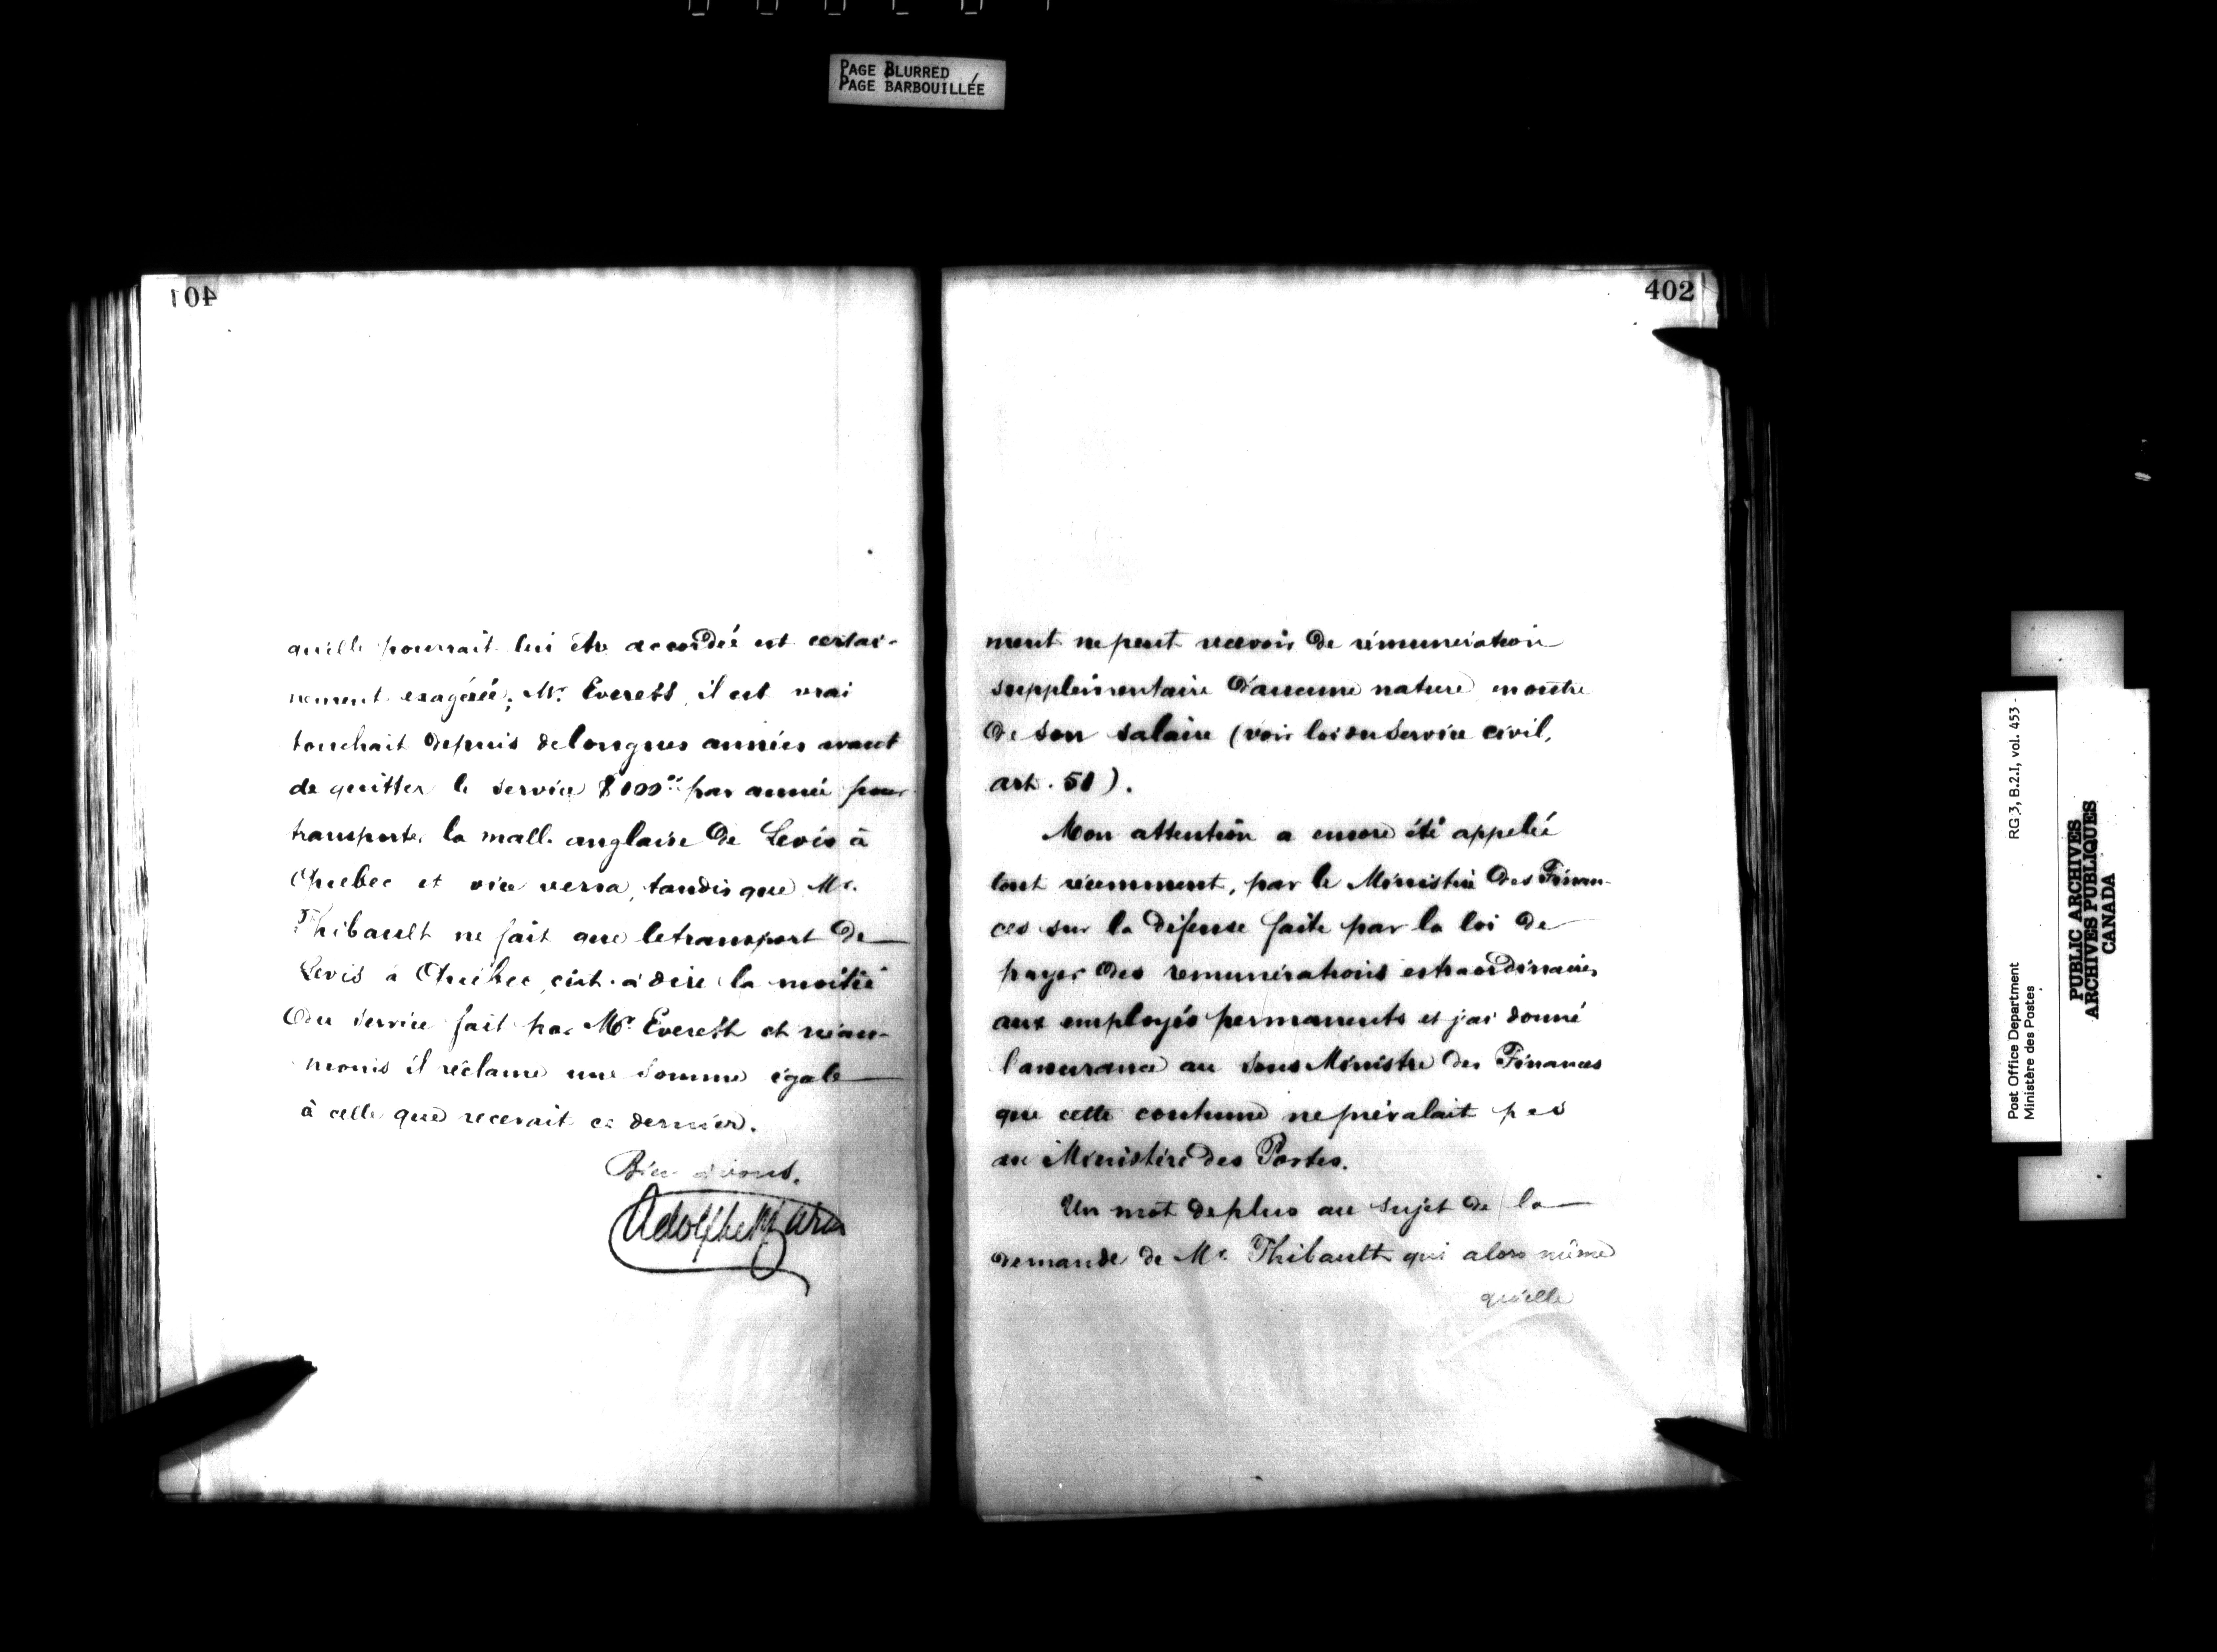 PAGE BLURRED
PAGE BARBOUILLÉE
401
qu'elle pourrait lui être accordée est certai-
nement exagérée; Mr. Everett, il est vrai
touchait depuis de longues années avant
de quitter le service $100.00 par année pour
transporter la malle anglaise de Levis à
Quebec et vice versa, tandis que Mr.
Thibault ne fait que le transport de
Levis à Québec, c'est-à dire la moitié
du service fait par Mr Everett et néan-
moins il réclame une somme égale
à celle que recevait ce dernier.
Bien à vous.
Adolphe
402
ment ne peut recevoir de rémunération
supplémentaire d'aucune nature en outre
de son salaire (voir loi du Service civil,
art. 51).
Mon attention a encore été appelée
tout récemment, par le Ministère des Finan-
ces sur la défense faite par la loi de
payer des rémunérations extraordinaires
aux employés permanents et j'ai donné
l'assurance au Sous Ministre des Finances
que cette coutume ne prévalait pas
au Ministère des Postes.
Un mot de plus au sujet de la
demande de Mr. Thibault qui alors même
qu'elle
Post Office Department
Ministère des Postes
RG 3, B.2.I, vol. 453
PUBLIC ARCHIVES
ARCHIVES PUBLIQUES
CANADA